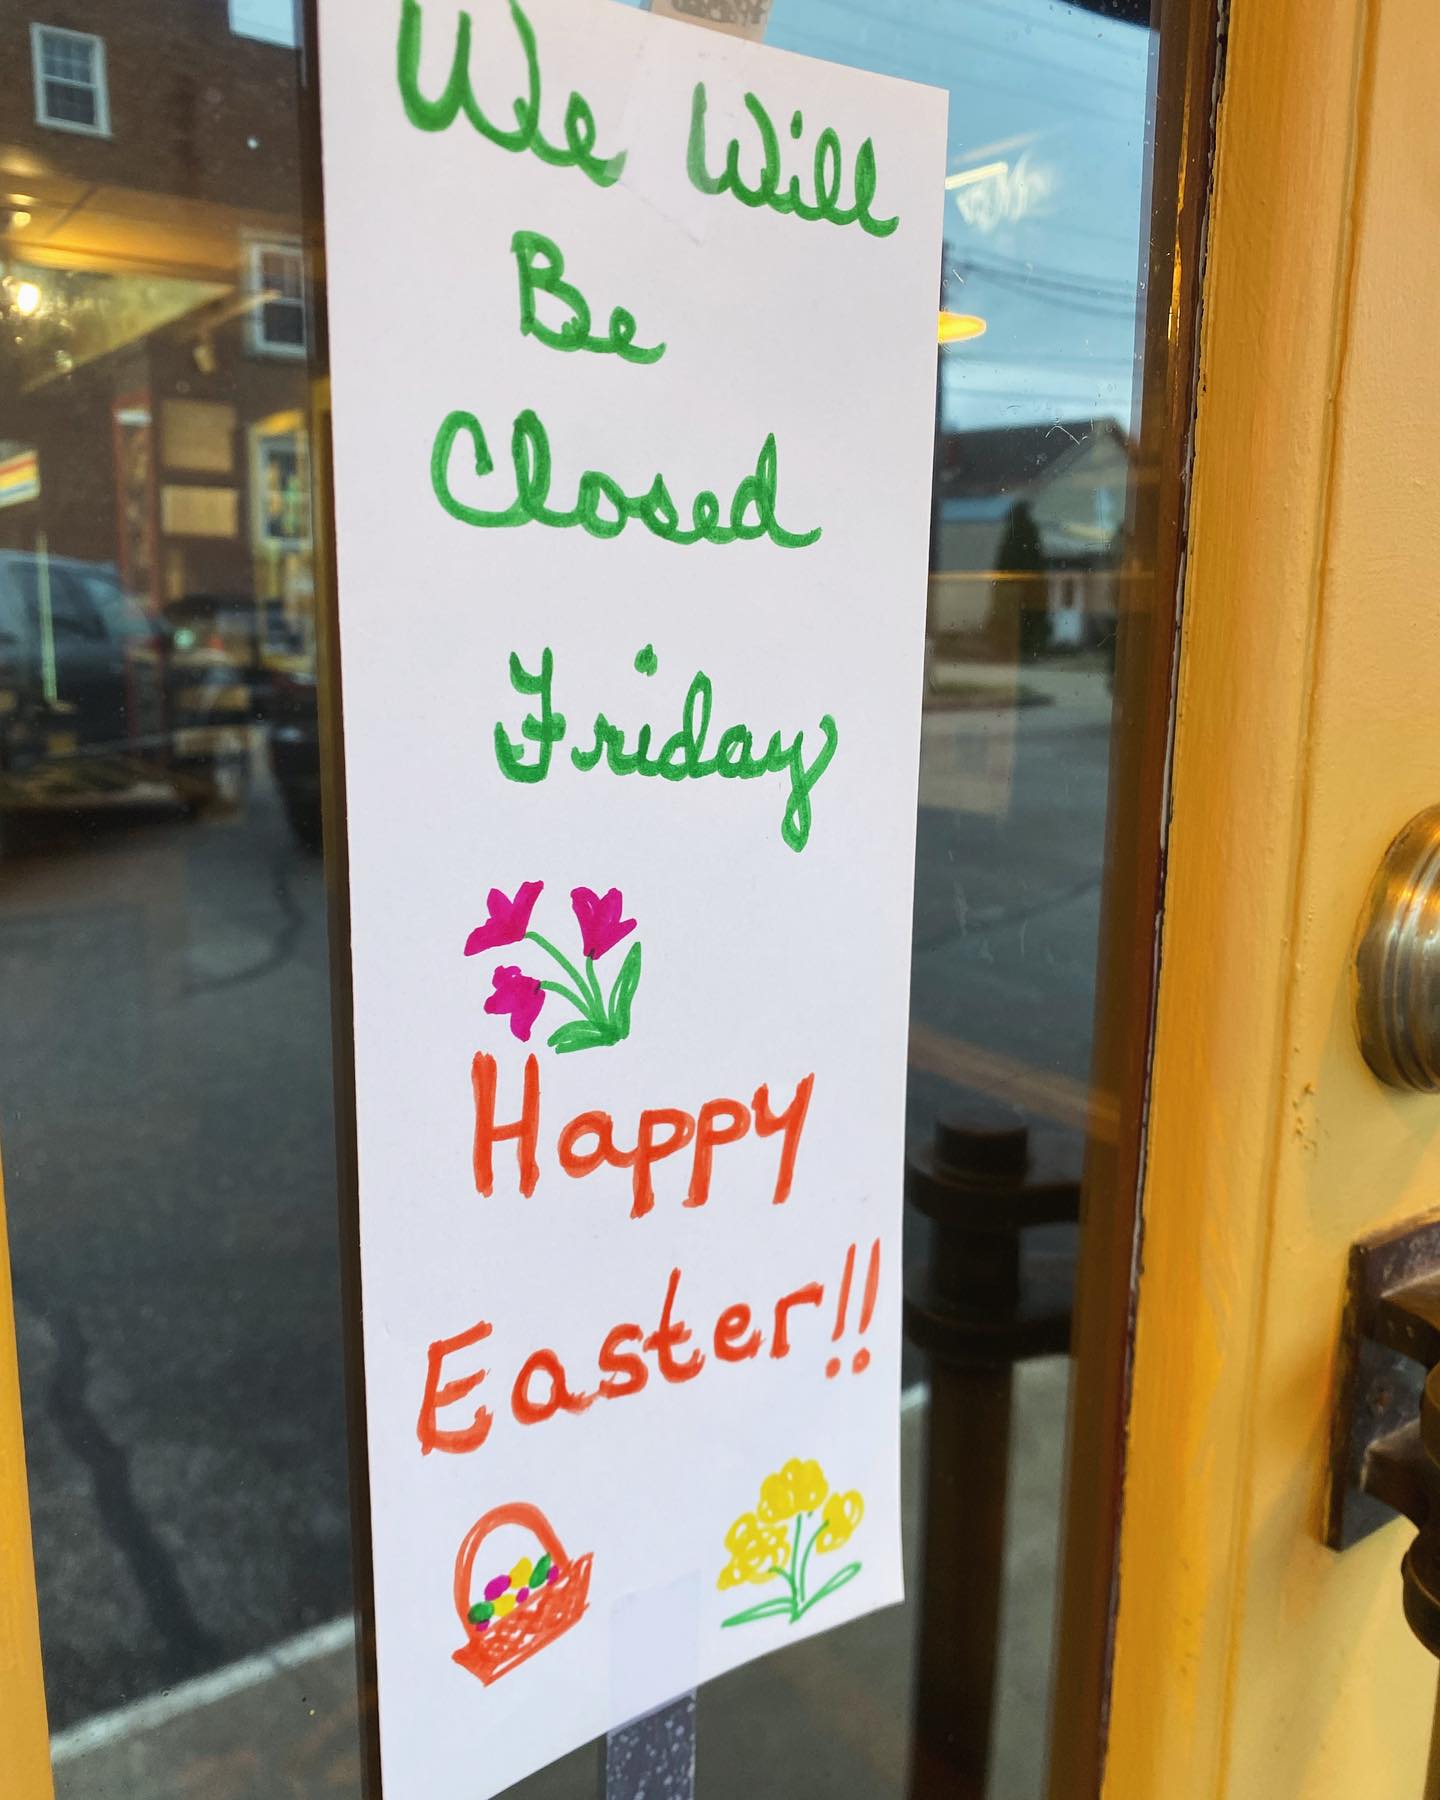 We Will
Be
Closed
Friday
Happy
Easter!!